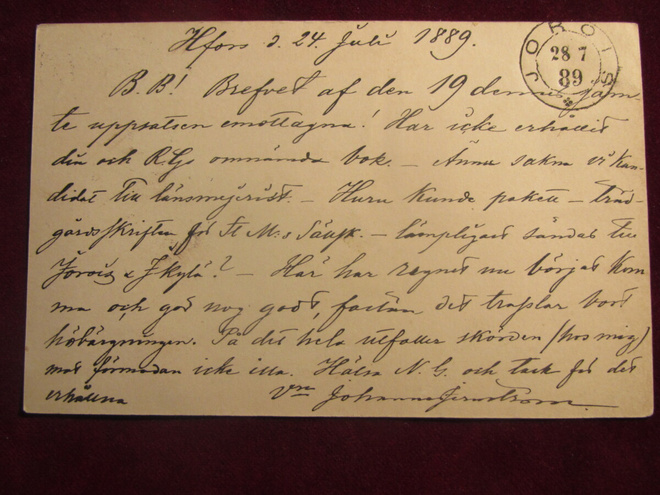 Hfors d. 24 Juli 1889.
JOROIS
28 7
89
B. B! Brefvet af den 19 dennes jäm-
te uppsatsen emottagna! Har icke erhållit
din och R. Ljs omnämda bok. – Ännu sakna vi kan-
didat till länsmejerist. – Huru kunde paketu – träd-
gårdsskriften för St M:s Sällsk. – lämpligast sändas till
Jorois & Jkylä? – Här har regnet nu börjat kom-
ma och gör nog godt, fastän det traslar bort
höbärgningen. På det hela utfaller skörden (hos mig)
mot förmodan icke illa. Hälsa N. G. och tack för det
erhållna Vnn Johannes